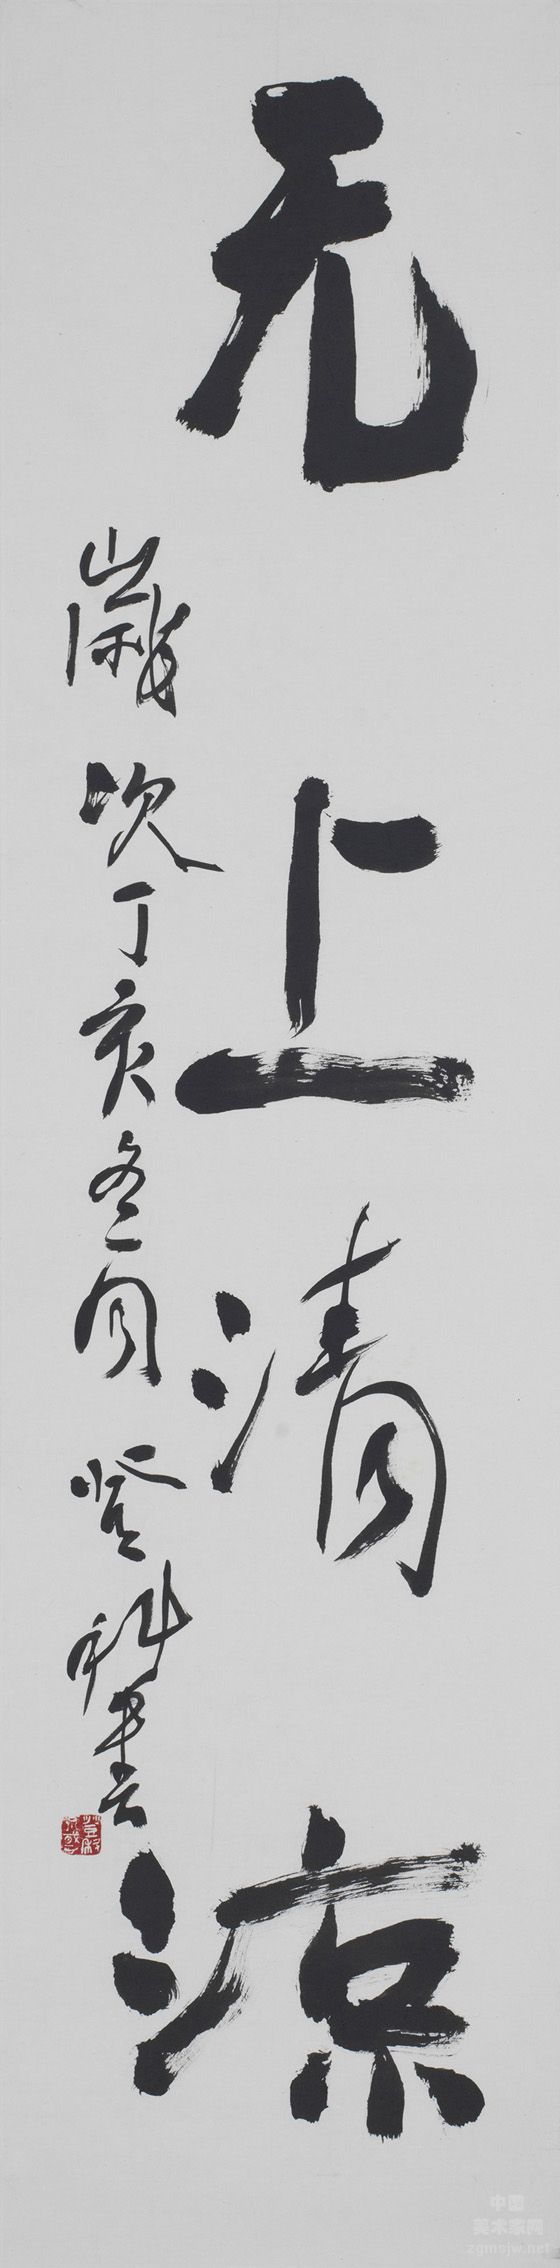 无上清凉
岁次丁亥冬月 登科书
中国
美术家网
zgmsjw.net